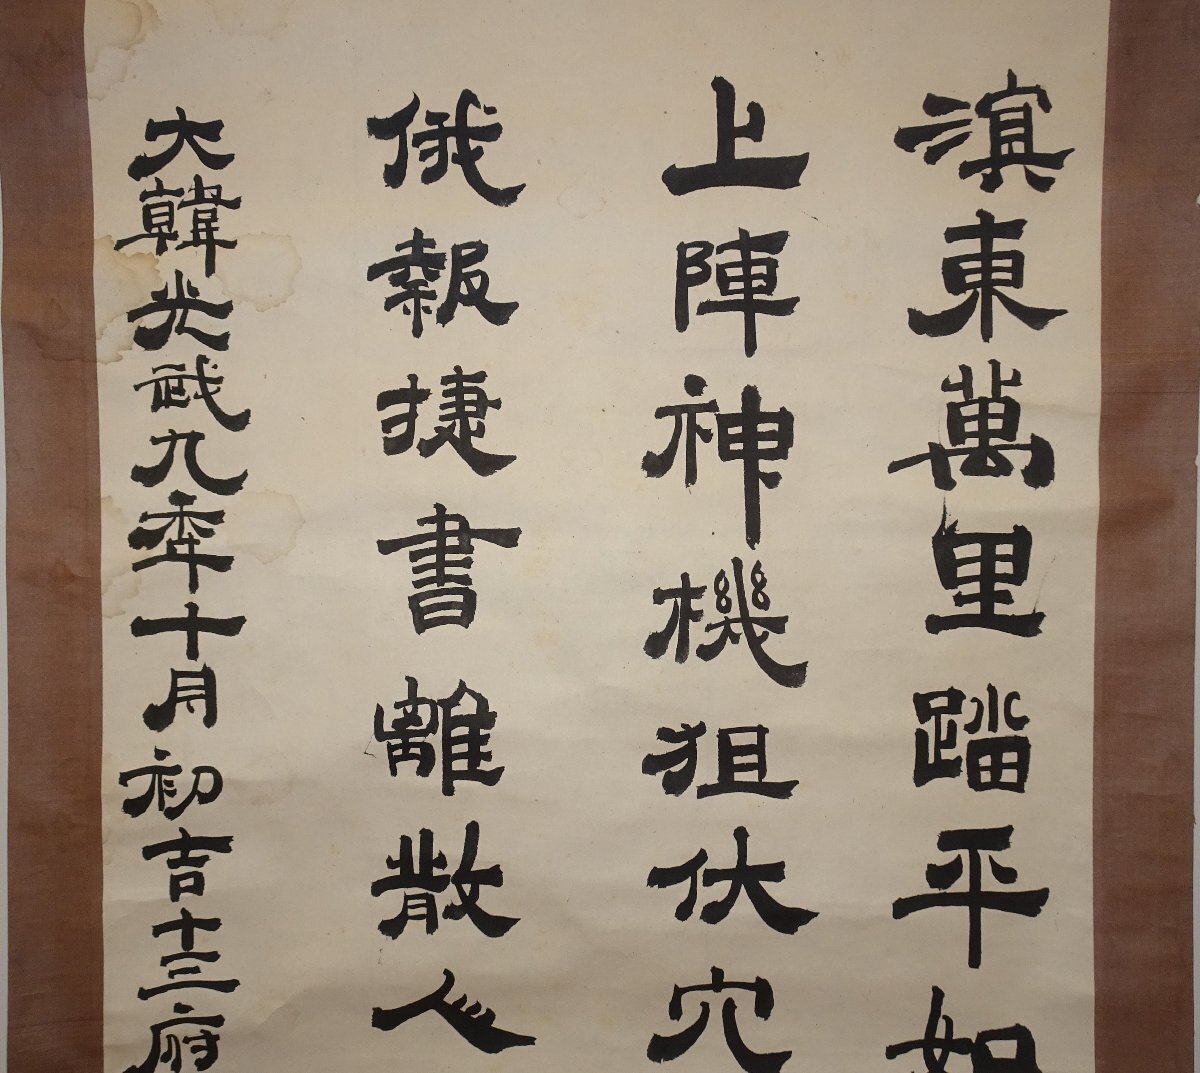 滇東萬里踏平如
上陣神機狙伏穴
俄報捷書離散人
大韓光武九年十月初吉十三府